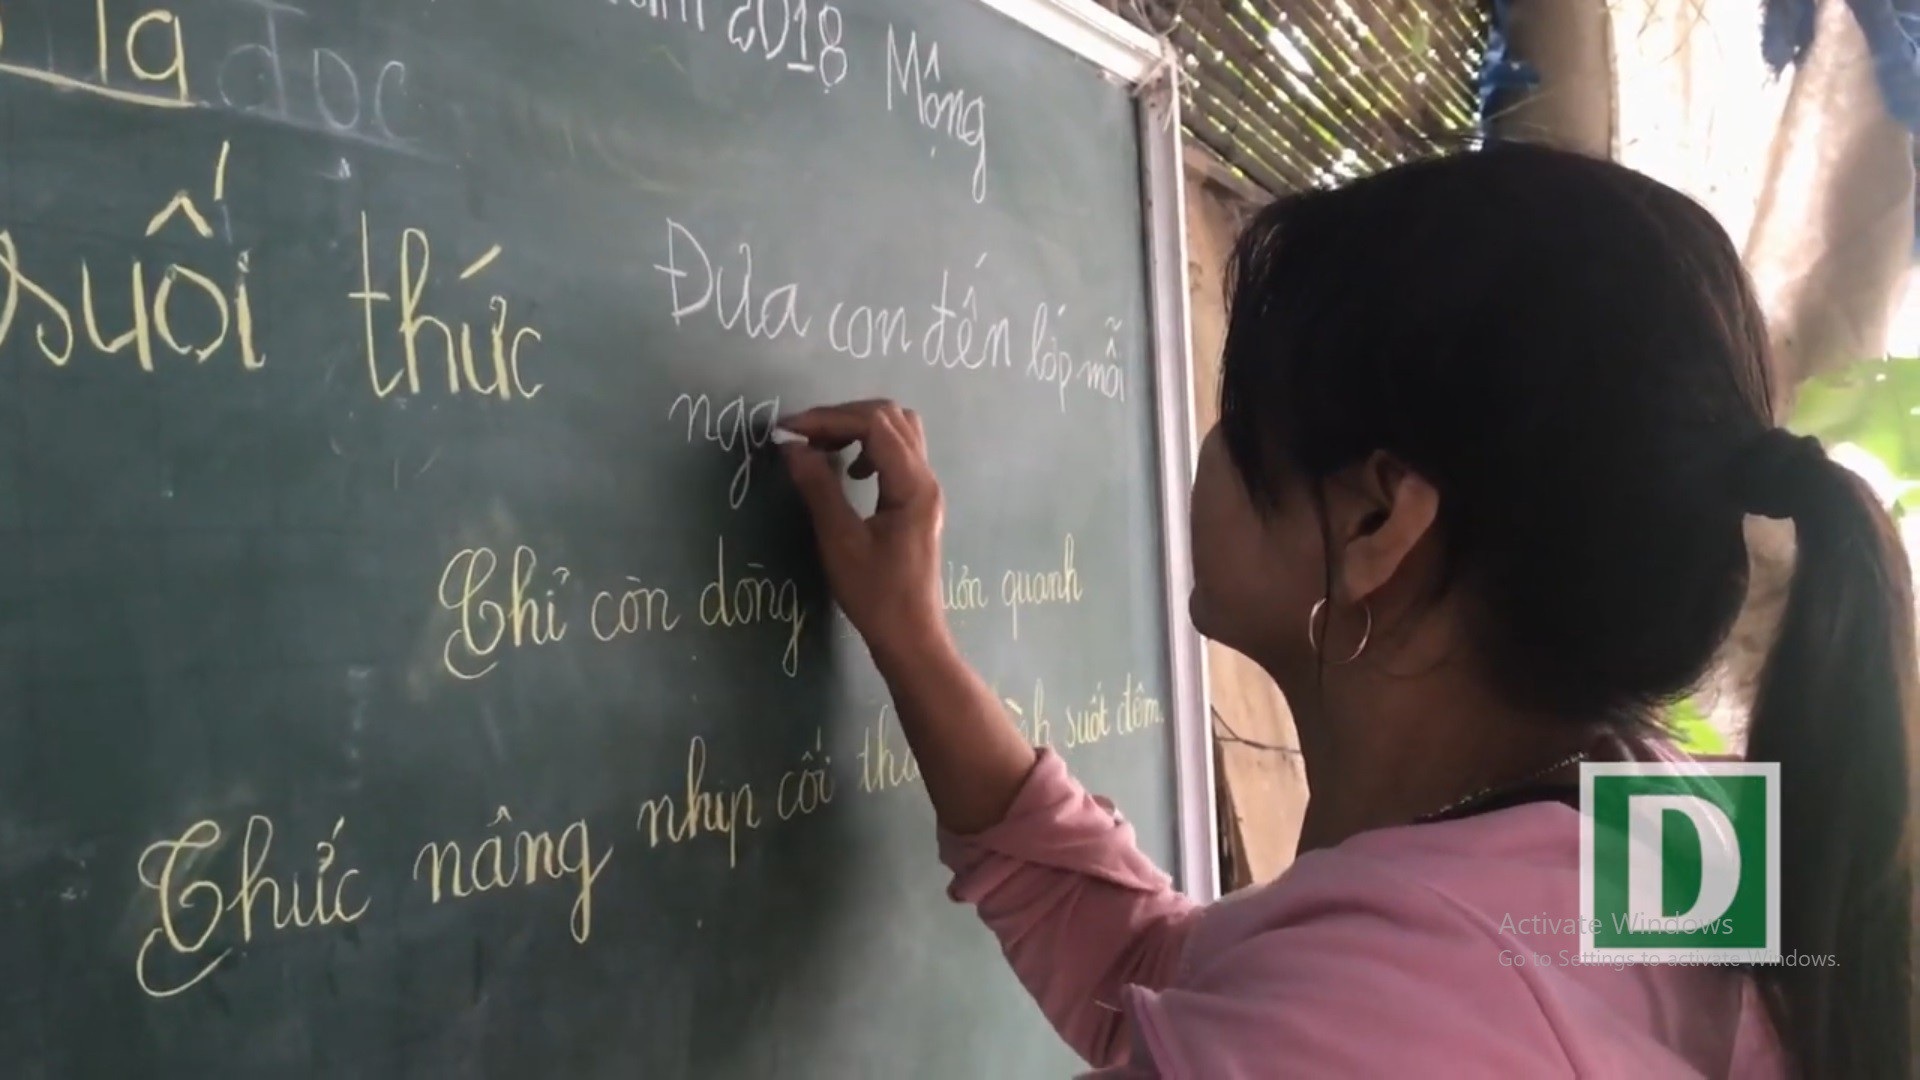 năm 2018 Mộng
la đọc
suối thức
Đưa con đến lớp mỗi
nga
Chỉ còn dòng lượn quanh
Thức nâng nhịp cối suốt đêm.
D
Activate Windows
Go to Settings to activate Windows.